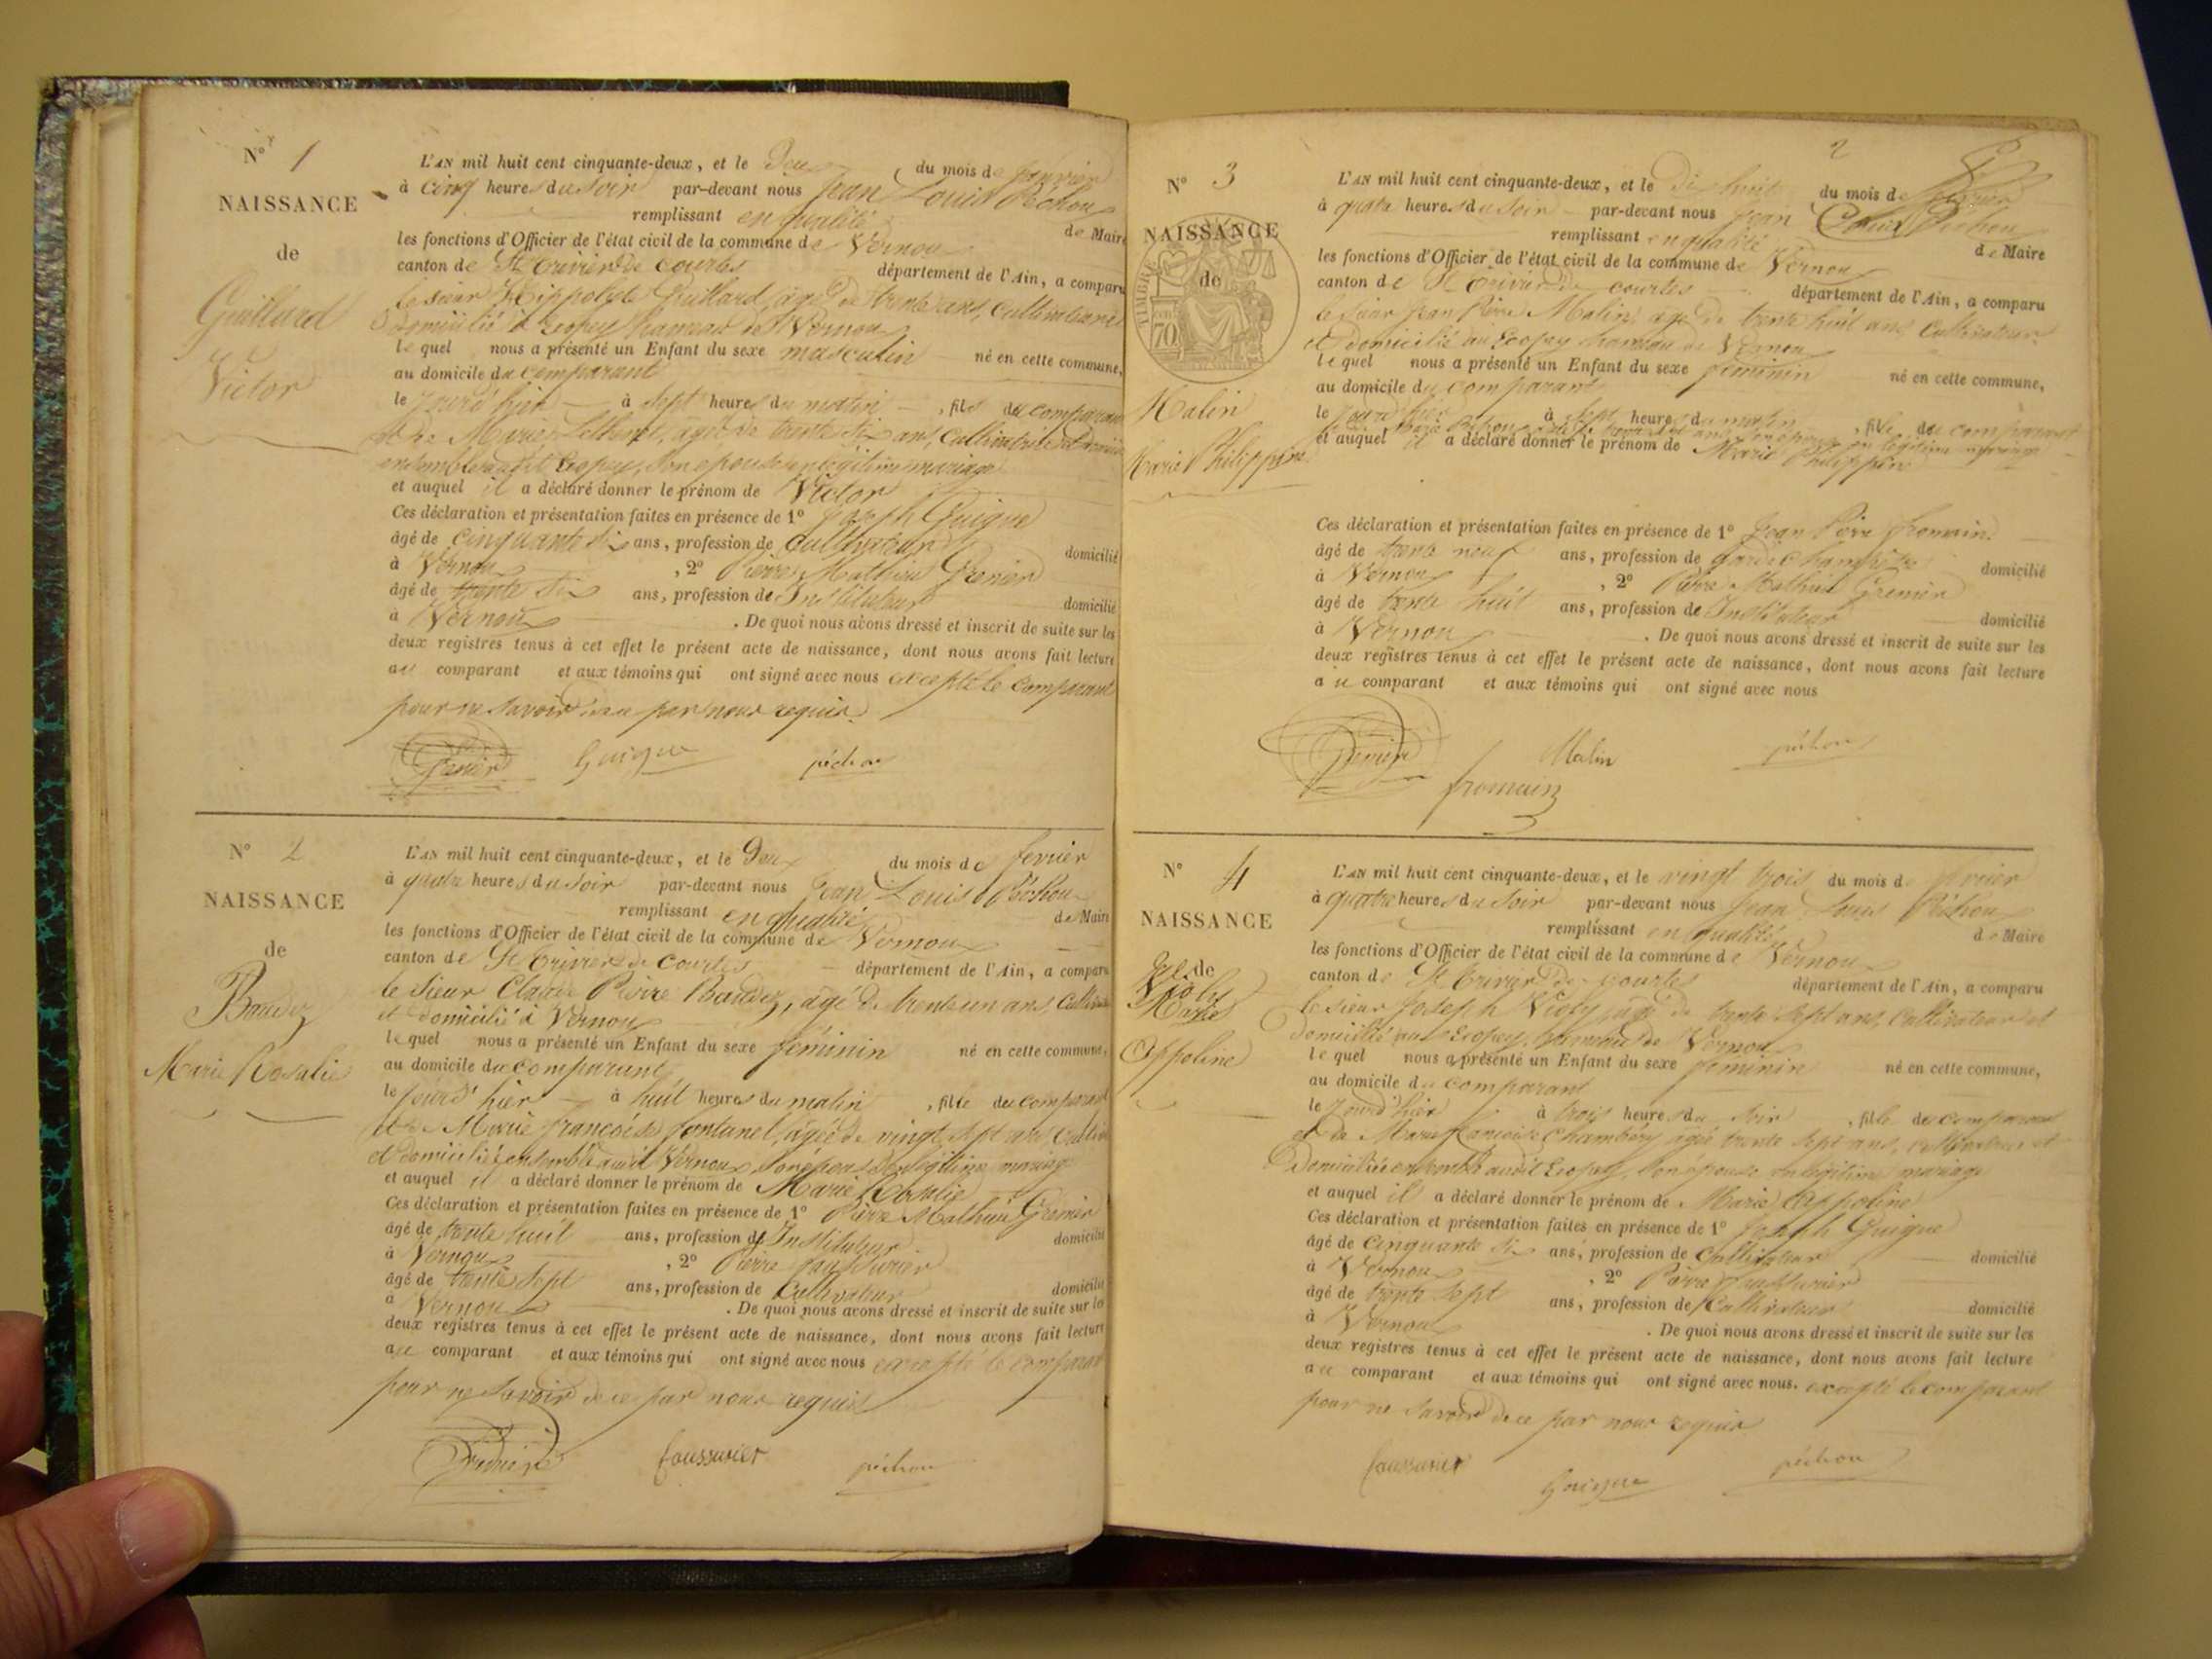 N° 1
NAISSANCE
de
Guillard
Victor
L'AN mil huit cent cinquante-deux, et le Deux du mois de janvier
à cinq heures du soir par-devant nous Jean Louis Péchoux
remplissant en qualité de Maire
les fonctions d'Officier de l'état civil de la commune de Vernoux
canton de St Trivier de courtes département de l'Ain, a comparu
le sieur Hippolyte Guillard, âgé de trente ans, cultivateur
domicilié à Ecopey hameau de Vernoux
lequel nous a présenté un Enfant du sexe masculin né en cette commune,
au domicile du comparant
le jourd'hier à sept heures du matin, fils du comparant
et de Marie âgée de trente six ans, cultivatrice
ensemble audit Ecopey, son épouse en légitime mariage
et auquel il a déclaré donner le prénom de Victor
Ces déclaration et présentation faites en présence de 1° Joseph Guigue
âgé de cinquante six ans, profession de cultivateur domicilié
à Vernoux, 2° Pierre Mathieu Grenier
âgé de trente six ans, profession de Instituteur domicilié
à Vernoux. De quoi nous avons dressé et inscrit de suite sur les
deux registres tenus à cet effet le présent acte de naissance, dont nous avons fait lecture
au comparant et aux témoins qui ont signé avec nous excepté le comparant
pour ne savoir par nous requis
Grenier Guigue péchoux
N° 2
NAISSANCE
de
Baudez
Marie Rosalie
L'AN mil huit cent cinquante-deux, et le Deux du mois de fevrier
à quatre heures du soir par-devant nous Jean Louis Péchoux
remplissant en qualité de Maire
les fonctions d'Officier de l'état civil de la commune de Vernoux
canton de St Trivier de Courtes département de l'Ain, a comparu
le sieur Claude Pierre Baudez, âgé de trente un ans,
et domicilié à Vernoux
lequel nous a présenté un Enfant du sexe féminin né en cette commune,
au domicile du comparant
le jourd'hier à huit heures du matin, fille du comparant
et de Marie françoise fontanel, âgée de vingt sept ans
et domiciliés ensemble audit Vernoux son épouse en légitime mariage
et auquel il a déclaré donner le prénom de Marie Rosalie
Ces déclaration et présentation faites en présence de 1° Pierre Mathieu Grenier
âgé de trente huit ans, profession de Instituteur domicilié
à Vernoux, 2° Pierre faussurier
âgé de trente sept ans, profession de Cultivateur domicilié
à Vernoux. De quoi nous avons dressé et inscrit de suite sur les
deux registres tenus à cet effet le présent acte de naissance, dont nous avons fait lecture
au comparant et aux témoins qui ont signé avec nous excepté le comparant
pour ne savoir de ce par nous requis
Grenier faussurier péchoux
2
N° 3
NAISSANCE
de
TIMBRE
70
Malin
Marie Philippine
L'AN mil huit cent cinquante-deux, et le dix huit du mois de fevrier
à quatre heures du soir par-devant nous Jean Louis Péchoux
remplissant en qualité de Maire
les fonctions d'Officier de l'état civil de la commune de Vernoux
canton de St Trivier de courtes département de l'Ain, a comparu
le sieur Jean Pierre Malin, âgé de trente huit ans Cultivateur
et domicilié au Ecopey hameau de Vernoux
lequel nous a présenté un Enfant du sexe féminin né en cette commune,
au domicile du comparant
le jourd'hier à sept heures du matin, fille du comparant
en légitime mariage
et auquel il a déclaré donner le prénom de Marie Philippine
Ces déclaration et présentation faites en présence de 1° Jean Pierre fromain
âgé de trente neuf ans, profession de garde champêtre domicilié
à Vernoux, 2° Pierre Mathieu Grenier
âgé de trente huit ans, profession de Instituteur domicilié
à Vernoux. De quoi nous avons dressé et inscrit de suite sur les
deux registres tenus à cet effet le présent acte de naissance, dont nous avons fait lecture
au comparant et aux témoins qui ont signé avec nous
Grenier Malin péchoux
fromain
N° 4
NAISSANCE
de
Violy
Marie
Appoline
L'AN mil huit cent cinquante-deux, et le vingt trois du mois de fevrier
à quatre heures du soir par-devant nous Jean Louis Péchoux
remplissant en qualité de Maire
les fonctions d'Officier de l'état civil de la commune de Vernoux
canton de St Trivier de courtes département de l'Ain, a comparu
le sieur Joseph Violy, âgé de trente sept ans, Cultivateur et
domicilié au Ecopey, hameau de Vernoux
lequel nous a présenté un Enfant du sexe féminin né en cette commune,
au domicile du comparant
le jourd'hier à trois heures du soir, fille du comparant
et de Marie françoise Chambéry âgée trente sept ans, et
domiciliée ensemble audit Ecopey, son épouse en légitime mariage
et auquel il a déclaré donner le prénom de Marie Appoline
Ces déclaration et présentation faites en présence de 1° Joseph Guigue
âgé de cinquante six ans, profession de Cultivateur domicilié
à Vernoux, 2° Pierre faussurier
âgé de trente sept ans, profession de Cultivateur domicilié
à Vernoux. De quoi nous avons dressé et inscrit de suite sur les
deux registres tenus à cet effet le présent acte de naissance, dont nous avons fait lecture
au comparant et aux témoins qui ont signé avec nous. excepté le comparant
pour ne savoir de ce par nous requis
faussurier Guigue péchoux